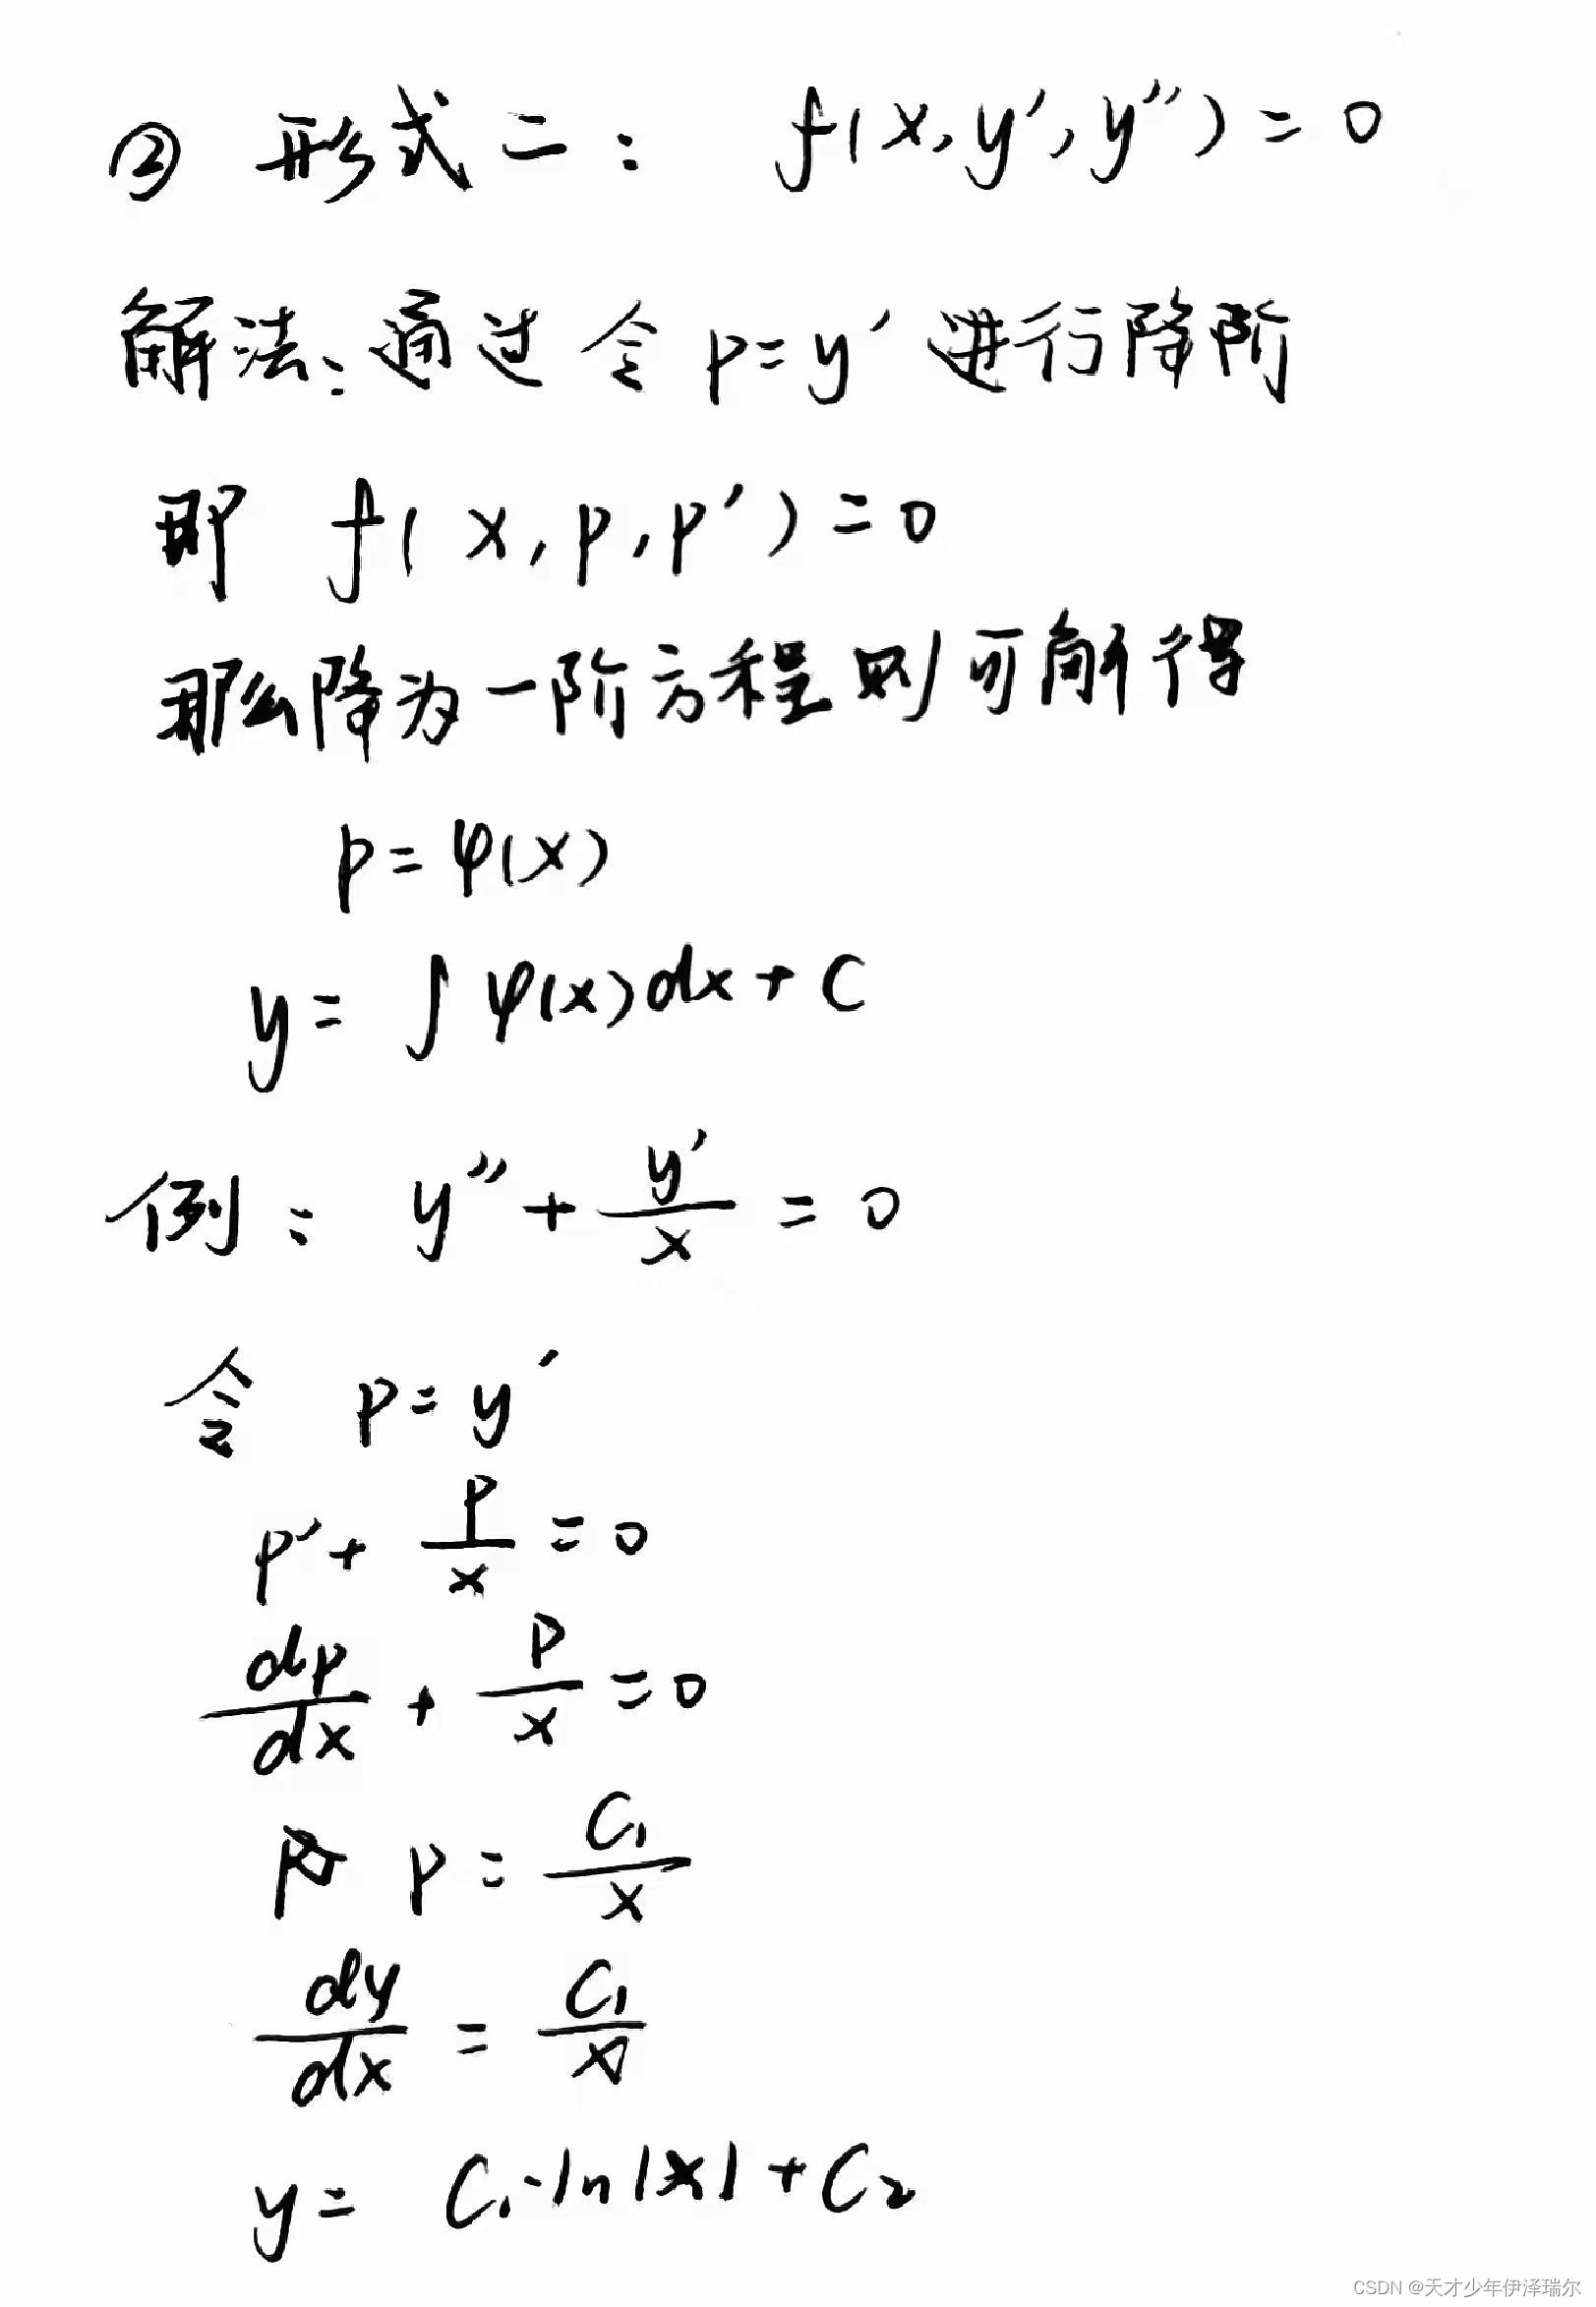 ② 形式二： f(x, y′, y″) = 0
解法：通过令 p = y′ 进行降阶
即 f(x, p, p′) = 0
那么降为一阶方程则可解得
p = φ(x)
y = ∫ φ(x)dx + C
例： y″ + y′/x = 0
令 p = y′
p′ + p/x = 0
dp/dx + p/x = 0
p = C₁/x
dy/dx = C₁/x
y = C₁·ln|x| + C₂
CSDN @天才少年伊泽瑞尔